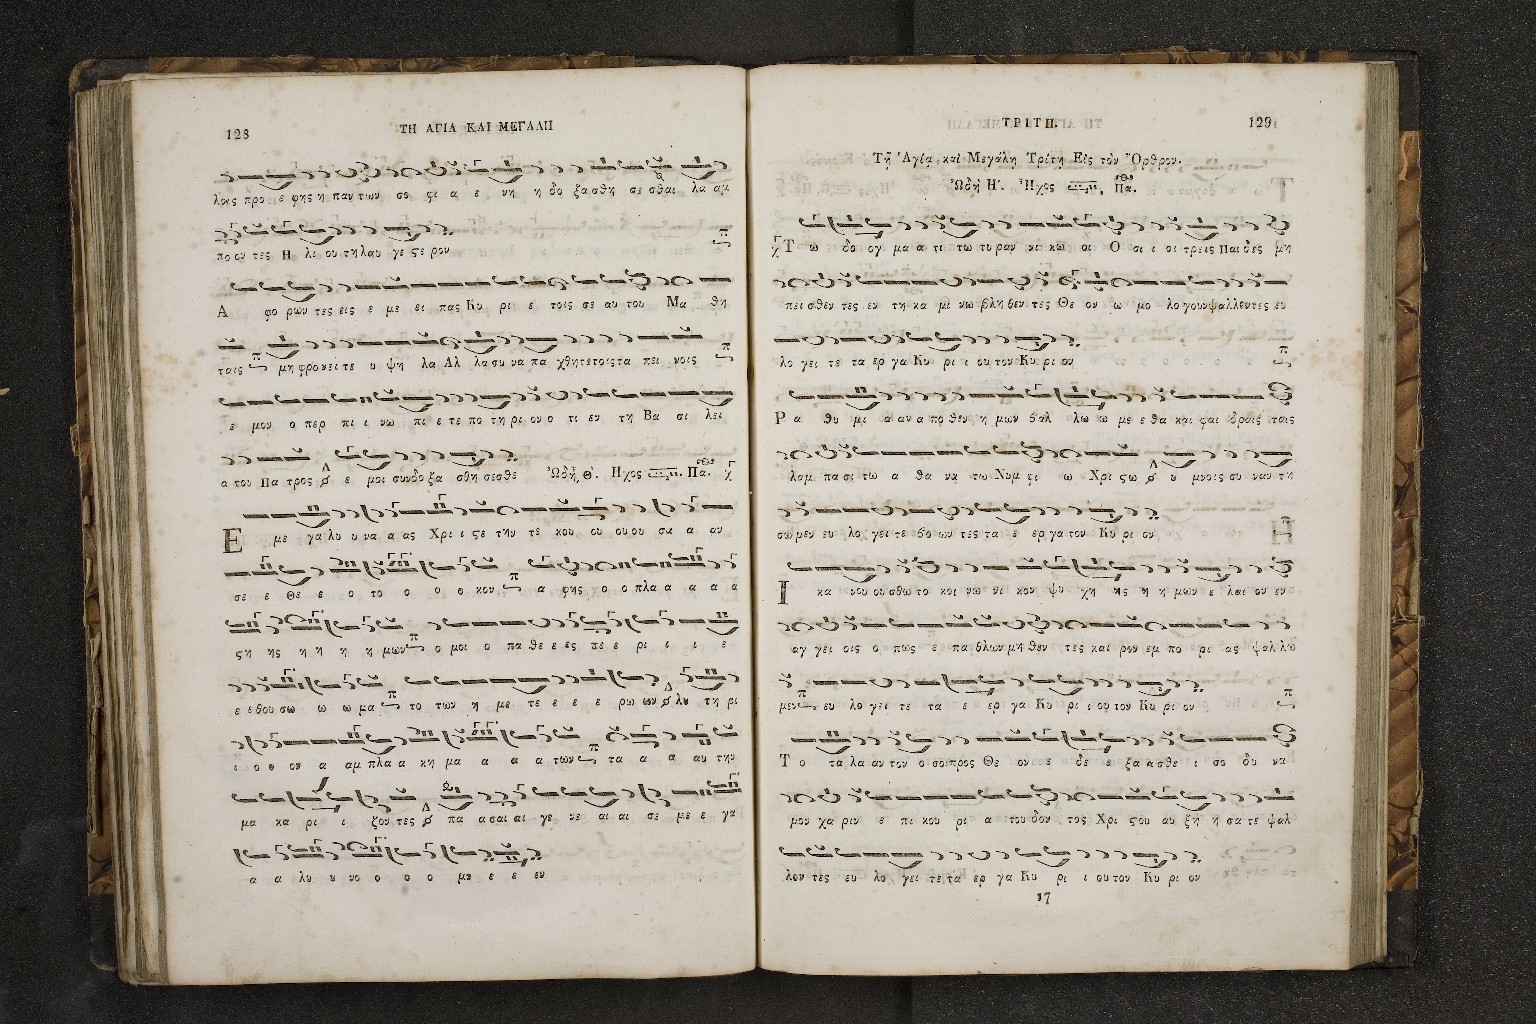 128
ΤΗ ΑΓΙΑ ΚΑΙ ΜΕΓΑΛΗ
λοις προ ε φης η παν των σο φι α ε νη η δο ξα σθη σε σθαι λα αμ
πο ον τες Η λι ου τηλαυ γε ϛε ρον
Α φο ρων τες εις ε με ει πας Κυ ρι ε τοις σε αυ του Μα θη
ταις μη φρο νει τε υ ψη λα Αλ λα συ να πα χθη τε τοις τα πει νοις
ε μον ο περ πι ι νω πι ε τε πο τη ρι ον ο τι εν τη Βα σι λει
α του Πα τρος ε μοι συνδο ξα σθη σεσθε Ὠδὴ Θ΄. Ηχος Πα.
Ε με γα λυ υ να α ας Χρι ι ϛε την τε κου ου ου ου σα α αν
σε ε Θε ε ο το ο ο ο κον α φης ο ο πλα α α α α
ϛη ης η η η η μων ο μοι ο πα θε ε ες πε ε ρι ι ι ε
ε ε δου σω ω ω μα το των η με τε ε ε ε ρω ων λυ τη ρι
ι ο ο ον α αμ πλα α κη μα α α α των τα α α αυ την
μα κα ρι ι ζον τες πα α σαι αι γε νε αι αι σε με ε γα
α α λυ υ νο ο ο ο με ε ε εν
ΤΡΙΤΗ.
129
Τῇ Ἁγίᾳ καὶ Μεγάλῃ Τρίτῃ Εἰς τὸν Ὄρθρον.
Ὠδὴ Η΄. Ἦχος Πα.
Τ ω δο ογ μα α τι τω τυ ραν νι κω οι Ο σι ι οι τρεις Παι δες μη
πει σθεν τες εν τη κα μι νω βλη θεν τες Θε ον ω μο λο γουν ψαλλοντες ευ
λο γει τε τα ερ γα Κυ ρι ι ου τον Κυ ρι ον
Ρ α θυ μι α αν α πο θεν η μων βαλ λω ω με ε θα και φαι δραις ταις
λαμ πα σι τω α θα να τω Νυμ φι ω Χρι ϛω υ μνοις συ ναν τη
σω μεν ευ λο γει τε βο ων τες τα ε ερ γα τον Κυ ρι ον
Ι κα νου ου σθω το κοι νω νι κον ψυ χη ης η η μων ε λαι ον εν
αγ γει οις ο πως ε πα θλων μη θεν τες και ρον εμ πο ρι ας ψαλ λω
μεν ευ λο γει τε τα ε ερ γα Κυ ρι ι ου τον Κυ ρι ον
Τ ο τα λα αν τον ο σοι προς Θε ον ε δε ε ξα ασθε ι σο δυ να
μον χα ριν ε πι κου ρι α του δον τος Χρι ϛου αυ ξη η σα τε ψαλ
λον τες ευ λο γει τε τα ερ γα Κυ ρι ι ου τον Κυ ρι ον
17